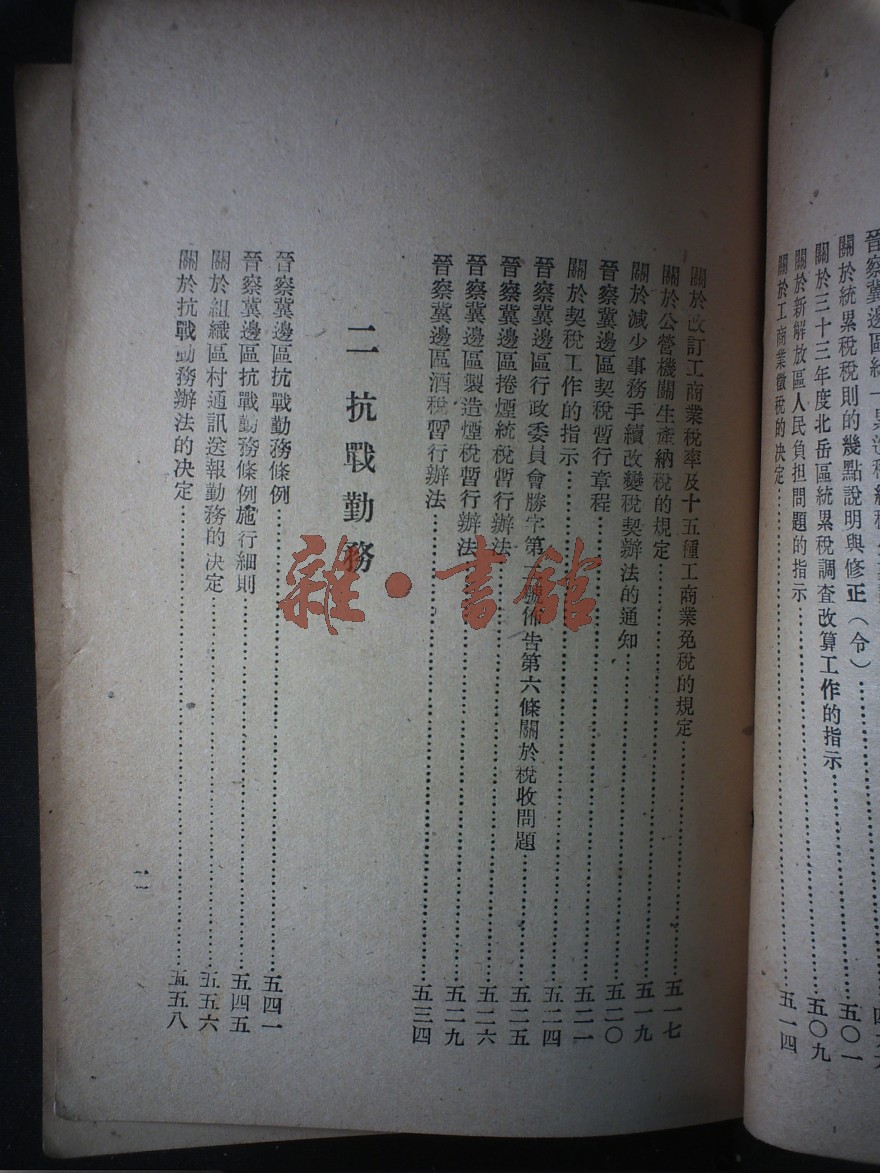 晉察冀邊區統一累進稅
關於統累稅稅則的幾點說明與修正（令）
關於三十三年度北岳區統累稅調查改算工作的指示……五〇一
關於新解放區人民負担問題的指示……五〇九
關於工商業徵稅的決定……五一四
關於改訂工商業稅率及十五種工商業免稅的規定……五一七
關於公營機關生產納稅的規定……五一九
關於減少事務手續改變稅契辦法的通知……五二〇
晉察冀邊區契稅暫行章程……五二一
關於契稅工作的指示……五二四
晉察冀邊區行政委員會勝字第一號佈告第六條關於稅收問題……五二五
晉察冀邊區捲煙統稅暫行辦法……五二六
晉察冀邊區製造煙稅暫行辦法……五二九
晉察冀邊區酒稅暫行辦法……五三四
二 抗戰勤務
晉察冀邊區抗戰勤務條例……五四一
晉察冀邊區抗戰勤務條例施行細則……五四五
關於組織區村通訊送報勤務的決定……五五六
關於抗戰勤務辦法的決定……五五八
一一
雜·書館